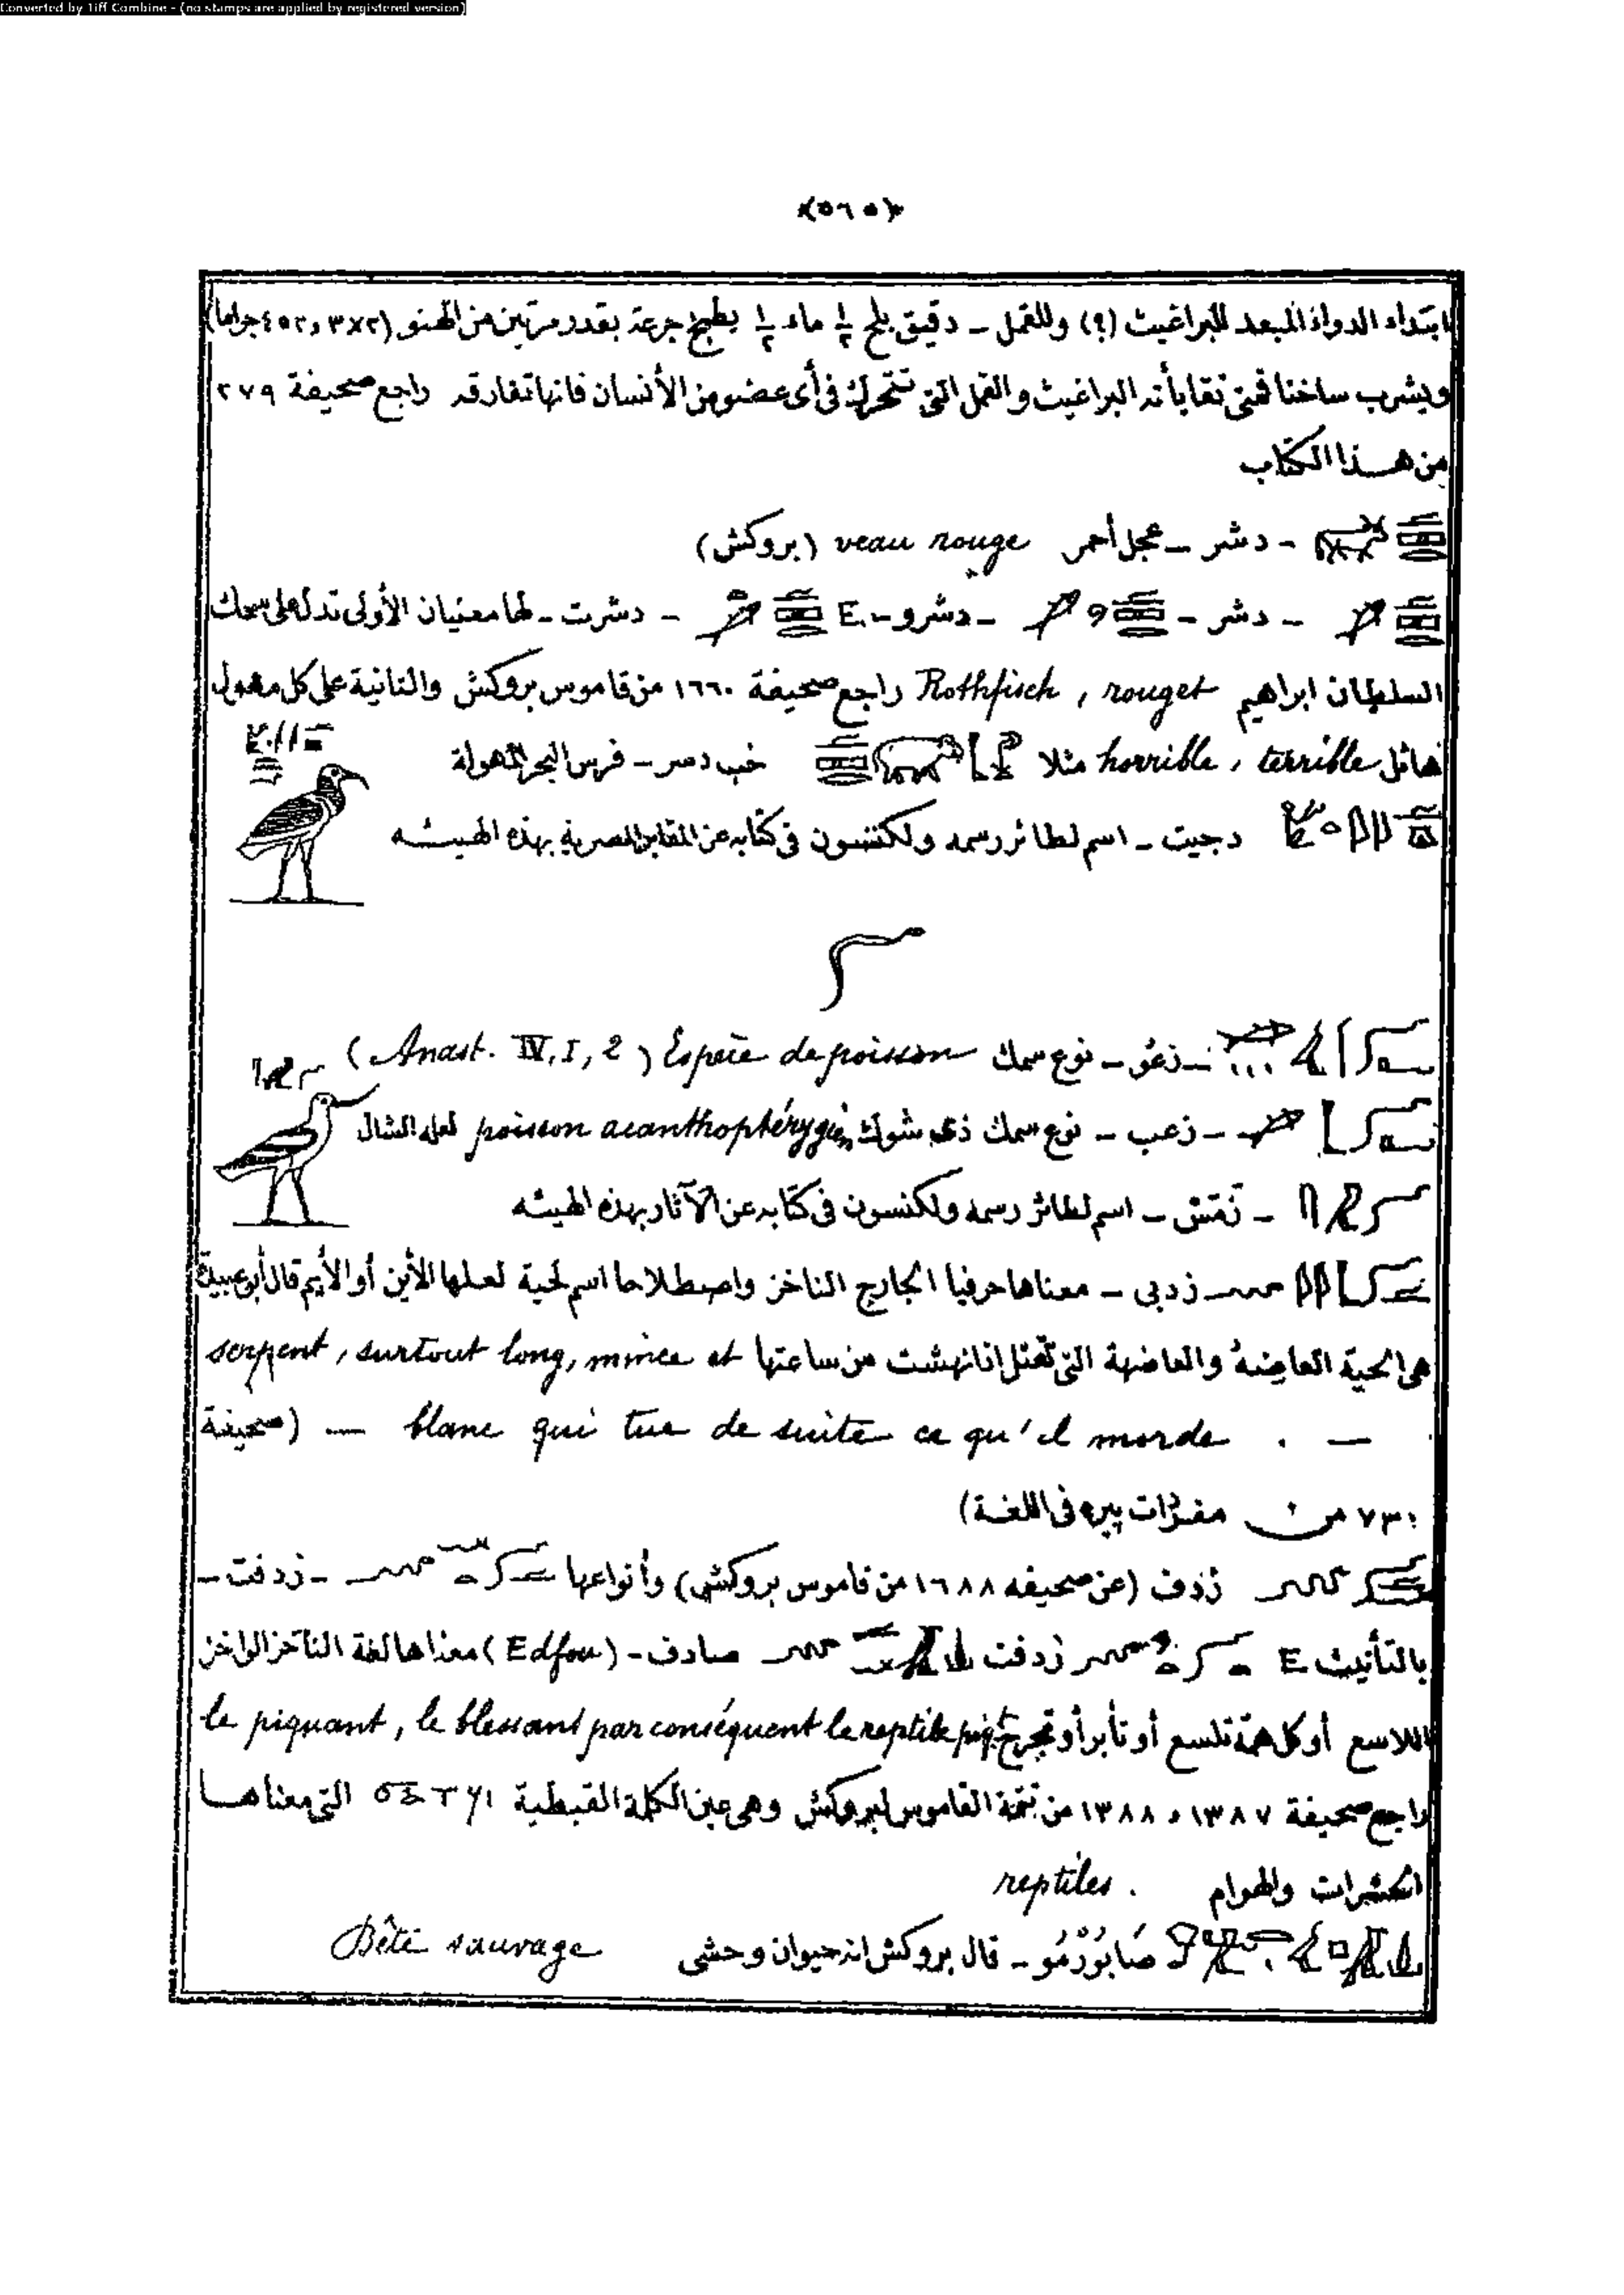 Converted by Tiff Combine - (no stamps are applied by registered version)
﴿٥٦٥﴾
ابتداء الدواء المبعد للبراغيث (؟) وللقمل ـ دقيق بلح ١/٢ ماء ١/٢ يطبخ جرعة بقدر مرتين من الهنو
ويشرب ساخنا فمتى تقايأته البراغيث والقمل التى تتحرك فى أى عضو من الأنسان فانها تفارقه راجع صحيفة ٢٧٩
من هذا الكتاب
ـ دشر ـ عجل أحمر veau rouge (بروكش)
ـ دشر ـ ـ دشرو ـ E ـ دشرت ـ لها معنيان الأولى تدل على سمك
السلطان ابراهيم Rothfisch , rouget راجع صحيفة ١٦٦٠ من قاموس بروكش والثانية على كل مهول
هائل horrible , terrible مثلا خب دسر ـ فرس البحر المهولة
دجيت ـ اسم لطائر رسمه ولكنسون فى كتابه عن المقابر المصرية بهذه الهيئه
ـ زعو ـ نوع سمك Espèce de poisson (Anast. IV, I, 2)
ـ زعب ـ نوع سمك ذى شوك poisson acanthoptérygien لعله الشال
ـ زمش ـ اسم لطائر رسمه ولكنسون فى كتابه عن الآثار بهذه الهيئه
زدبى ـ معناها حرفيا الجارح الناخز واصطلاحا اسم لحية لعلها الأين أو الأيم قال أبو عبيدة
هى الحية العاضه والعاضهة التى تقتل اذا نهشت من ساعتها serpent, surtout long, mince et
— blanc qui tue de suite ce qu'il morde . — (صحيفة
٧٣١ من مفردات پيره فى اللغة)
زدف (عن صحيفه ١٦٨٨ من قاموس بروكش) وأنواعها ـ زدفت ـ
بالتأنيث E زدفت صادف ـ (Edfou) معناها لغة الناخز الواخز
اللاسع أو كل هامة تلسع أو تأبر أو تجرح le piquant, le blessant par conséquent le reptile
راجع صحيفة ١٣٨٧ و ١٣٨٨ من تتمة القاموس لبروكش وهى عين الكلمة القبطية التى معناها
الحشرات والهوام reptiles .
صَابُورْمُو ـ قال بروكش انه حيوان وحشى Bête sauvage